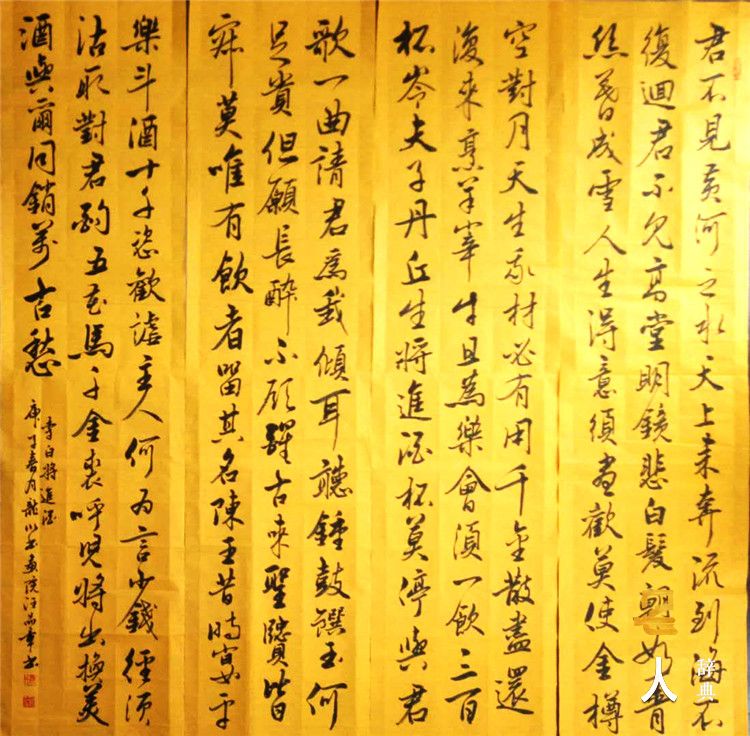 君不見黃河之水天上来奔流到海不
復迴君不見高堂明鏡悲白髮朝如青
絲暮成雪人生得意須盡歡莫使金樽
空對月天生我材必有用千金散盡還
復来烹羊宰牛且為樂會須一飲三百
杯岑夫子丹丘生將進酒杯莫停與君
歌一曲請君為我傾耳聽鍾鼓饌玉何
足貴但願長醉不願醒古来聖賢皆
寂莫唯有飲者留其名陳王昔時宴平
樂斗酒十千恣歡謔主人何为言少錢徑須
沽取對君酌五花馬千金裘呼兒將出換美
酒與爾同銷萬古愁
李白將進酒
庚子春月龍山書畫院汪品章書
人
辞典